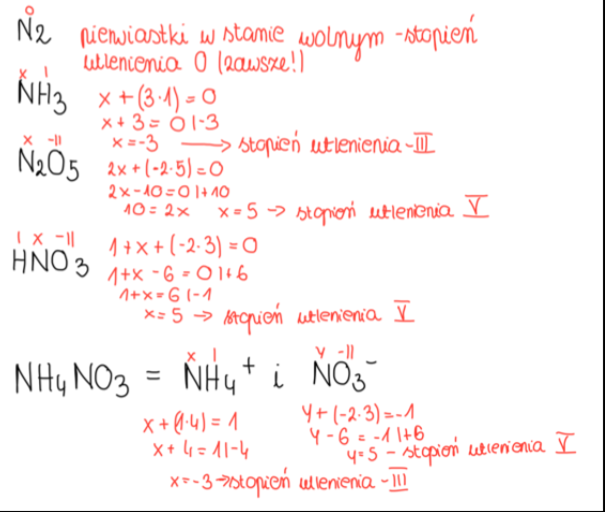 0
N2 pierwiastki w stanie wolnym - stopień
utlenienia 0 (zawsze!)
x I
NH3 x + (3·1) = 0
x + 3 = 0 |-3
x = -3 → stopień utlenienia -III
x -II
N2O5 2x + (-2·5) = 0
2x - 10 = 0 |+10
10 = 2x x = 5 → stopień utlenienia V
I x -II
HNO3 1 + x + (-2·3) = 0
1 + x - 6 = 0 |+6
1 + x = 6 |-1
x = 5 → stopień utlenienia V
x I y -II
NH4NO3 = NH4+ i NO3-
x + (1·4) = 1 y + (-2·3) = -1
x + 4 = 1 |-4 y - 6 = -1 |+6
y = 5 - stopień utlenienia V
x = -3 → stopień utlenienia -III